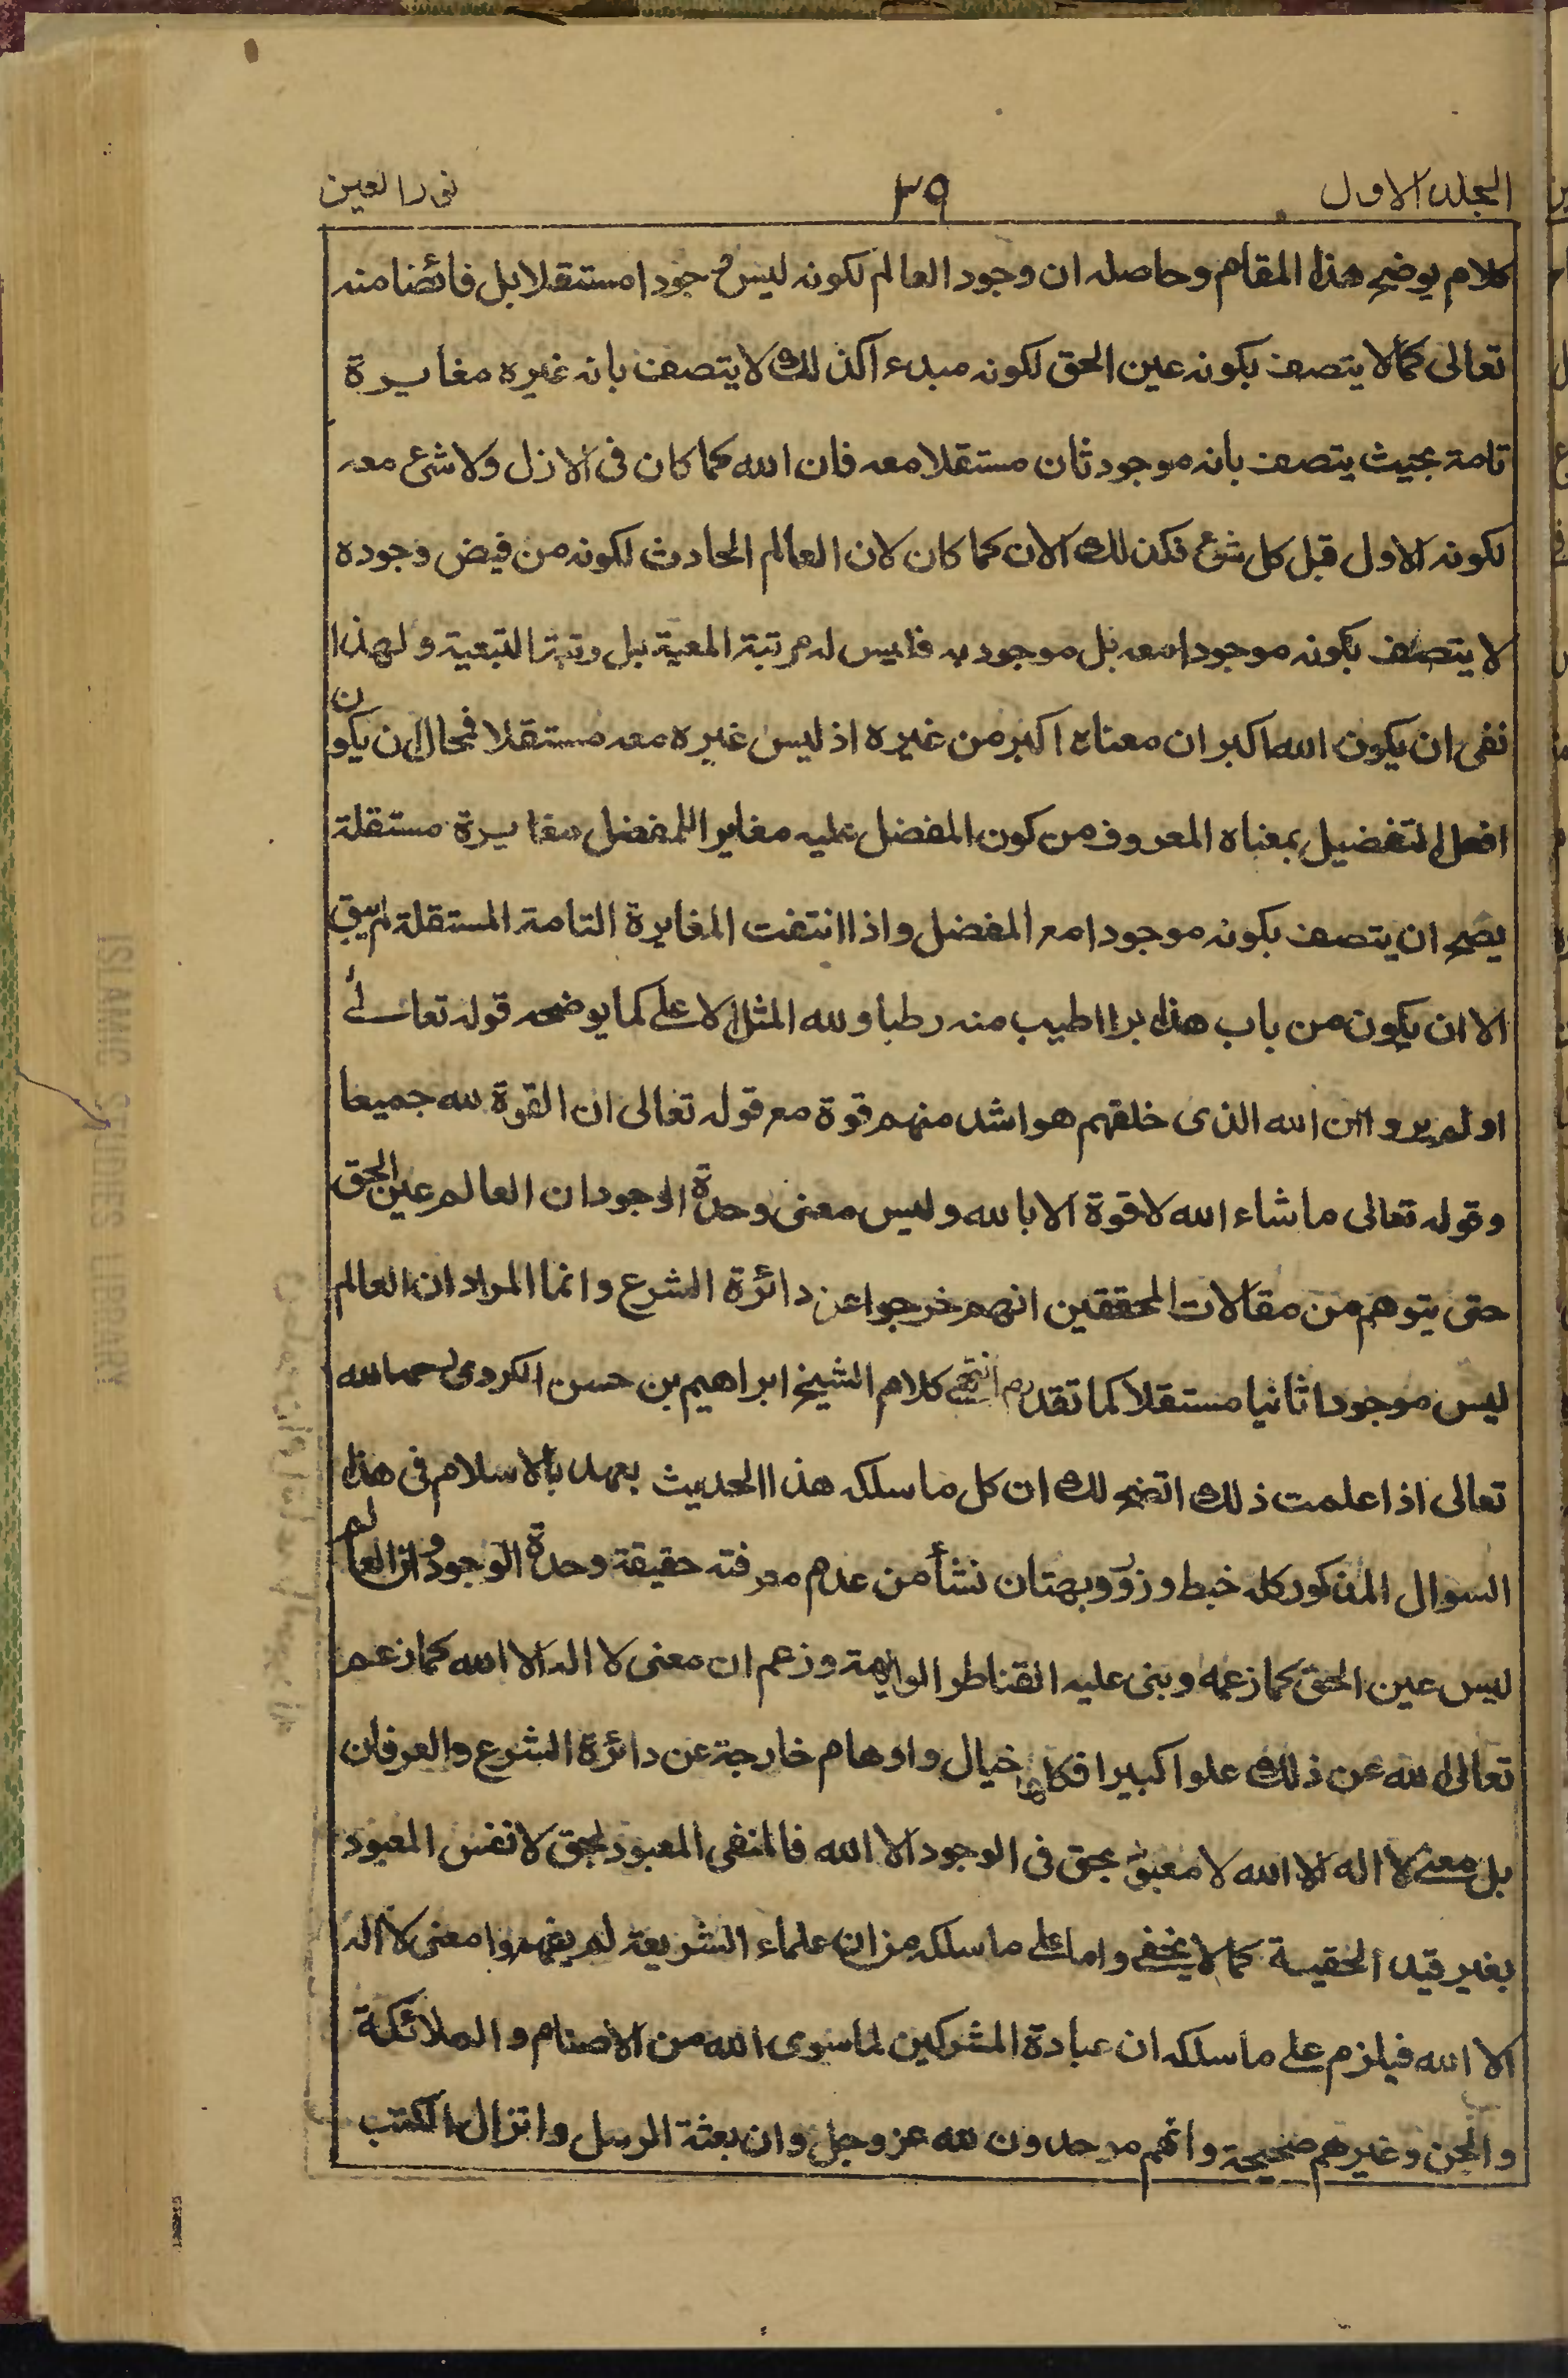 المجلد الاول
٣٩
نور العين
كلام يوضح هذا المقام وحاصله ان وجود العالم لكونه ليس وجودا مستقلا بل فائضا منه
تعالى كما لا يتصف بكونه عين الحق لكونه مبدء اكذلك لا يتصف بانه غيره مغايرة
تامة بحيث يتصف بانه موجود ثان مستقلا معه فان الله كما كان فى الازل ولا شئ معه
لكونه الاول قبل كل شئ فكذلك الان كما كان لان العالم الحادث لكونه من فيض وجوده
لا يتصف بكونه موجودا معه بل موجود به فليس له مرتبة المعية بل رتبة التبعية ولهذا
نفى ان يكون الله اكبر ان معناه اكبر من غيره اذ ليس غيره معه مستقلا فمحال ان يكون
افعل التفضيل بمعناه المعروف من كون المفضل عليه مغايرا للمفضل مغايرة مستقلة
يصح ان يتصف بكونه موجودا مع المفضل واذا انتفت المغايرة التامة المستقلة لم يبق
الا ان يكون من باب هذا برا اطيب منه رطبا ولله المثل الاعلى كما يوضحه قوله تعالى
اولم يروا ان الله الذى خلقهم هو اشد منهم قوة مع قوله تعالى ان القوة لله جميعا
وقوله تعالى ما شاء الله لا قوة الا بالله وليس معنى وحدة الوجود ان العالم عين الحق
حتى يتوهم من مقالات المحققين انهم خرجوا عن دائرة الشرع وانما المراد ان العالم
ليس موجودا ثانيا مستقلا كما تقدم انتهى كلام الشيخ ابراهيم بن حسن الكردى رحمه الله
تعالى اذا علمت ذلك اتضح لك ان كل ما سلكه هذا الحديث بعهد بالاسلام فى هذا
السوال المذكور كله خبط وزور وبهتان نشأ من عدم معرفته حقيقة وحدة الوجود وان العالم
ليس عين الحق كما زعمه وبنى عليه القناطر الواهية وزعم ان معنى لا اله الا الله كما زعم
تعالى الله عن ذلك علوا كبيرا فكلها خيال واوهام خارجة عن دائرة الشرع والعرفان
بل معنى لا اله الا الله لا معبود بحق فى الوجود الا الله فالمنفى المعبود بحق لا نفس المعبود
بغير قيد الحقية كما لا يخفى واما على ما سلكه من ان علماء الشريعة لم يفهموا معنى لا اله
الا الله فيلزم على ما سلكه ان عبادة المشركين لما سوى الله من الاصنام والملائكة
والجن وغيرهم صحيحة وانهم موحدون لله عز وجل وان بعثة الرسل وانزال الكتب
ISLAMIC STUDIES LIBRARY